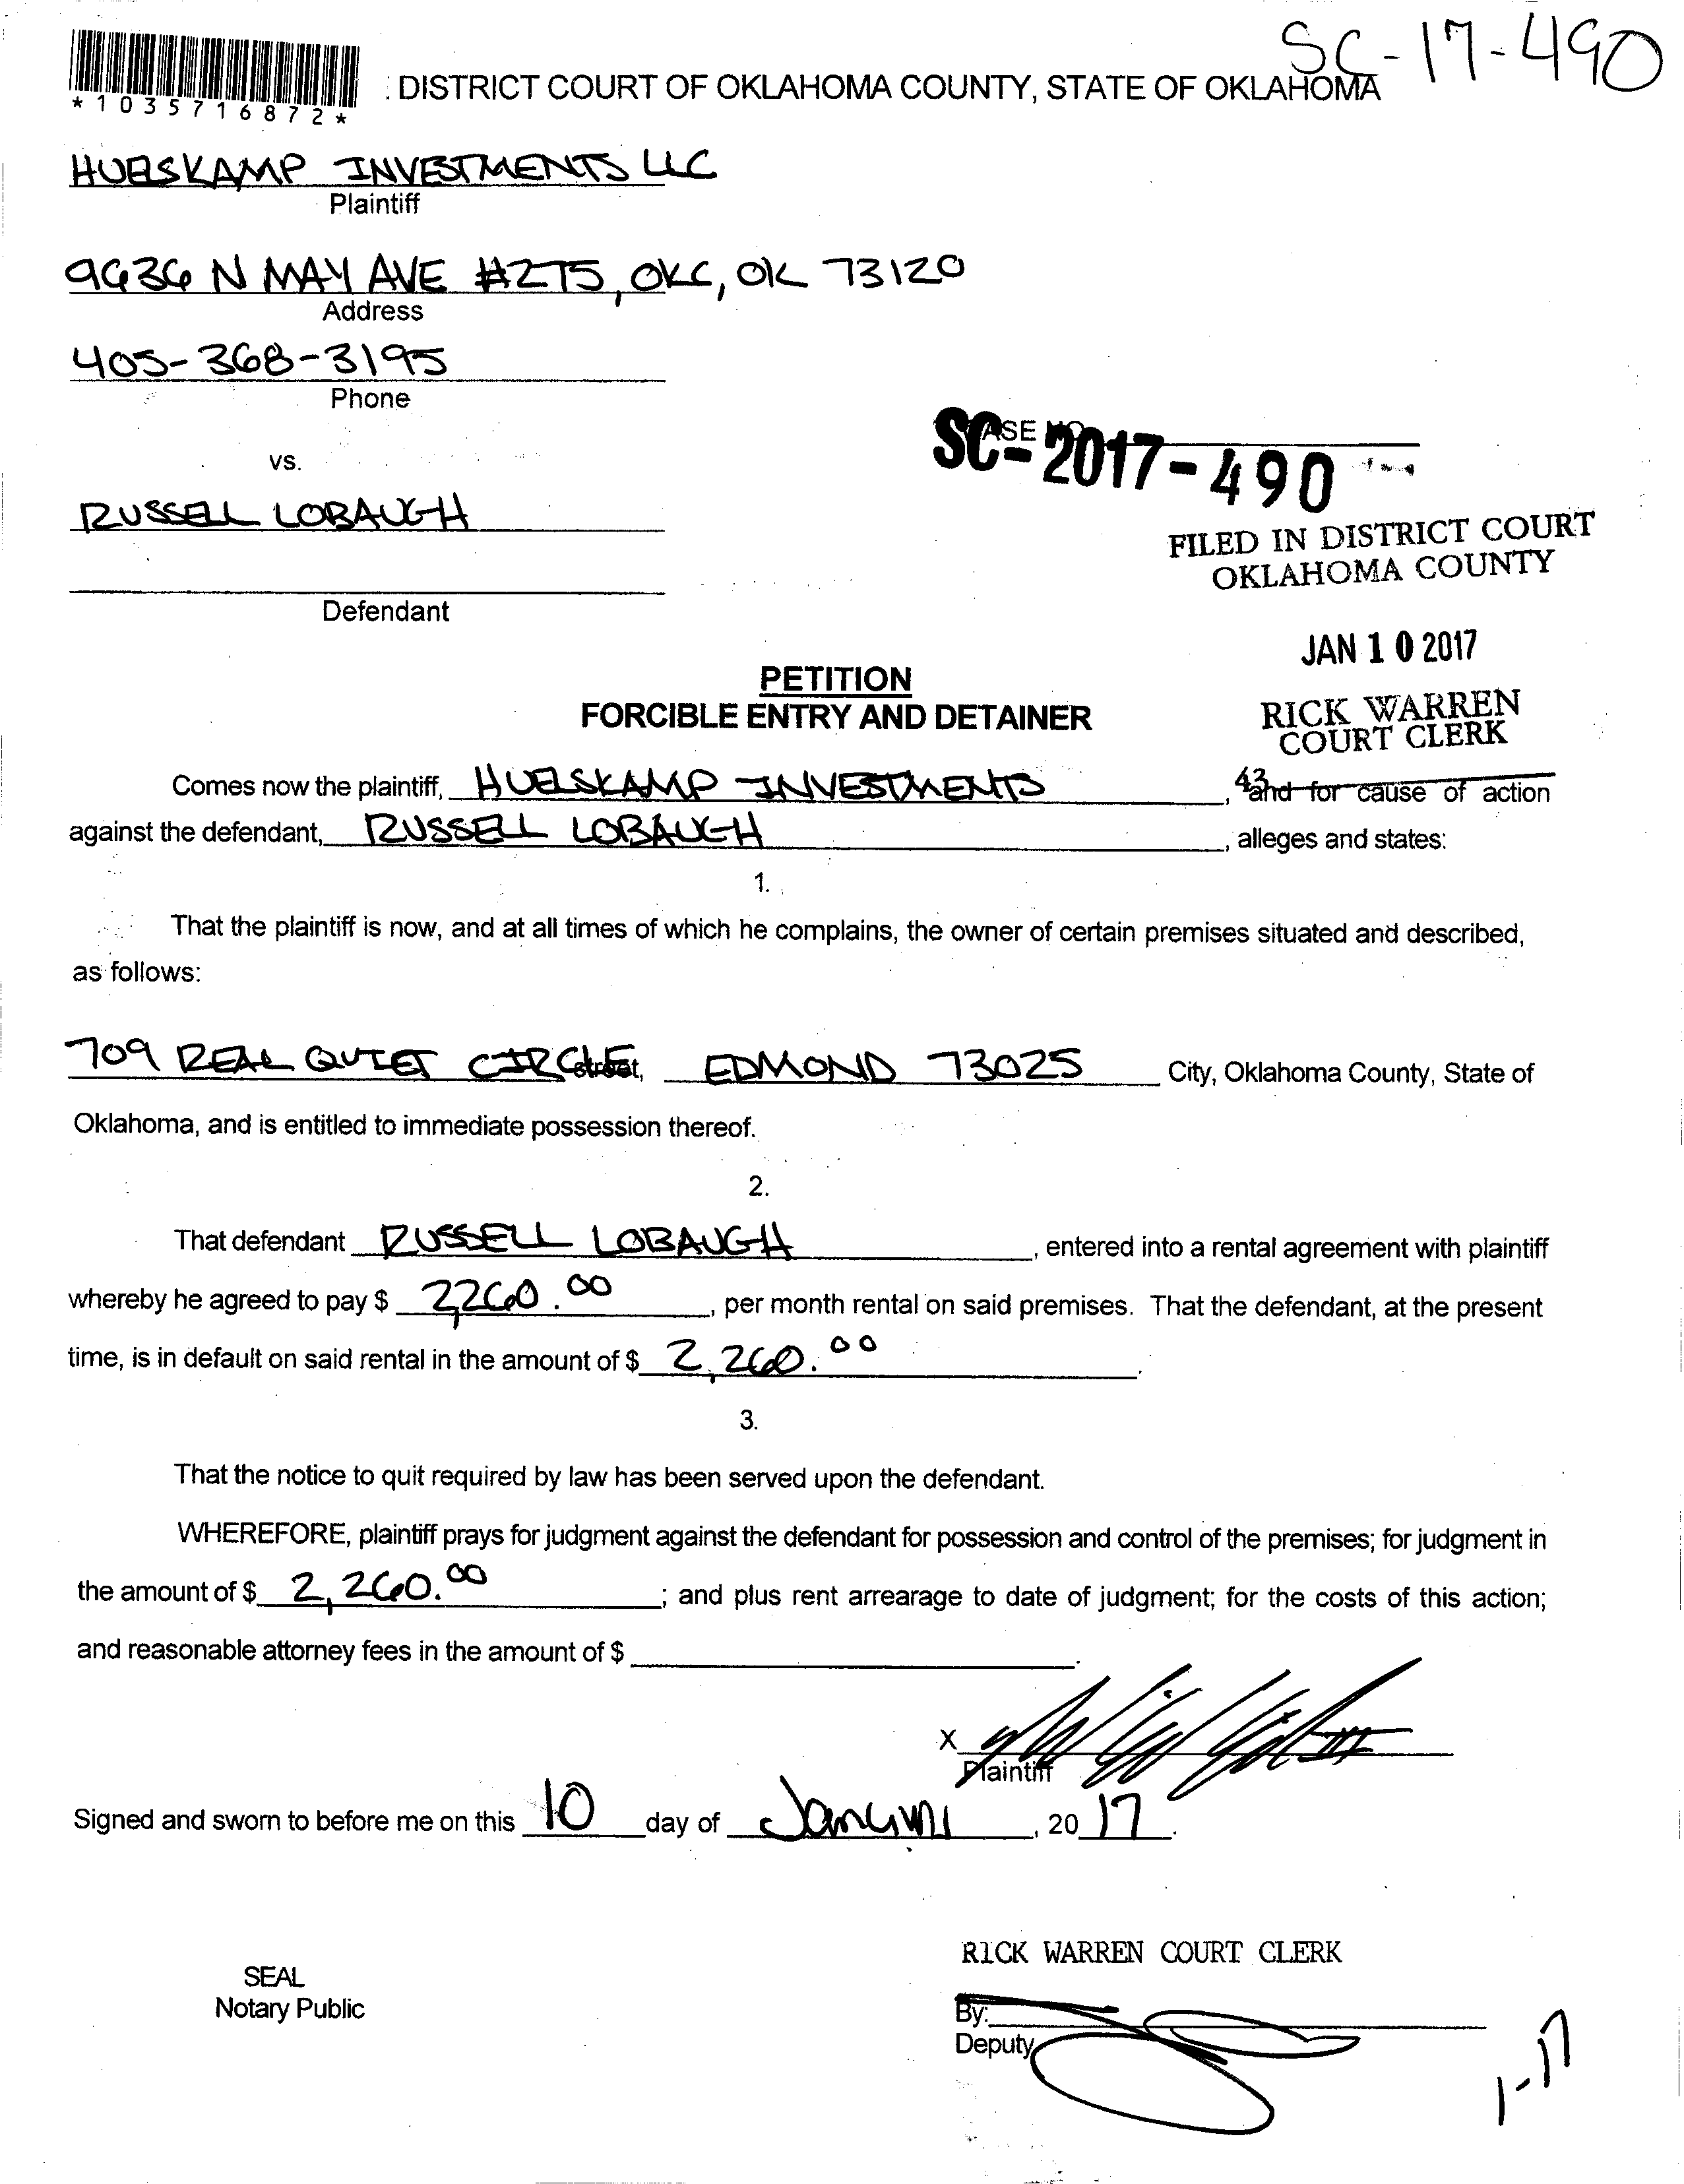 SC-17-490
*1035716872*
: DISTRICT COURT OF OKLAHOMA COUNTY, STATE OF OKLAHOMA
HUELSKAMP INVESTMENTS LLC
Plaintiff
9636 N MAY AVE #275, OKC, OK 73120
Address
405-368-3195
Phone
CASE NO.
SC-2017-490
vs.
RUSSELL LOBAUGH
FILED IN DISTRICT COURT
OKLAHOMA COUNTY
Defendant
JAN 10 2017
PETITION
FORCIBLE ENTRY AND DETAINER
RICK WARREN
COURT CLERK
43
Comes now the plaintiff, HUELSKAMP INVESTMENTS, and for cause of action
against the defendant, RUSSELL LOBAUGH, alleges and states:
1.
That the plaintiff is now, and at all times of which he complains, the owner of certain premises situated and described,
as follows:
709 REAL QUIET CIRCLE street, EDMOND 73025 City, Oklahoma County, State of
Oklahoma, and is entitled to immediate possession thereof.
2.
That defendant RUSSELL LOBAUGH, entered into a rental agreement with plaintiff
whereby he agreed to pay $ 2,260.00, per month rental on said premises. That the defendant, at the present
time, is in default on said rental in the amount of $ 2,260.00.
3.
That the notice to quit required by law has been served upon the defendant.
WHEREFORE, plaintiff prays for judgment against the defendant for possession and control of the premises; for judgment in
the amount of $ 2,260.00; and plus rent arrearage to date of judgment; for the costs of this action;
and reasonable attorney fees in the amount of $ .
X
Plaintiff
Signed and sworn to before me on this 10 day of January, 20 17.
RICK WARREN COURT CLERK
SEAL
Notary Public
By:
Deputy
1-17